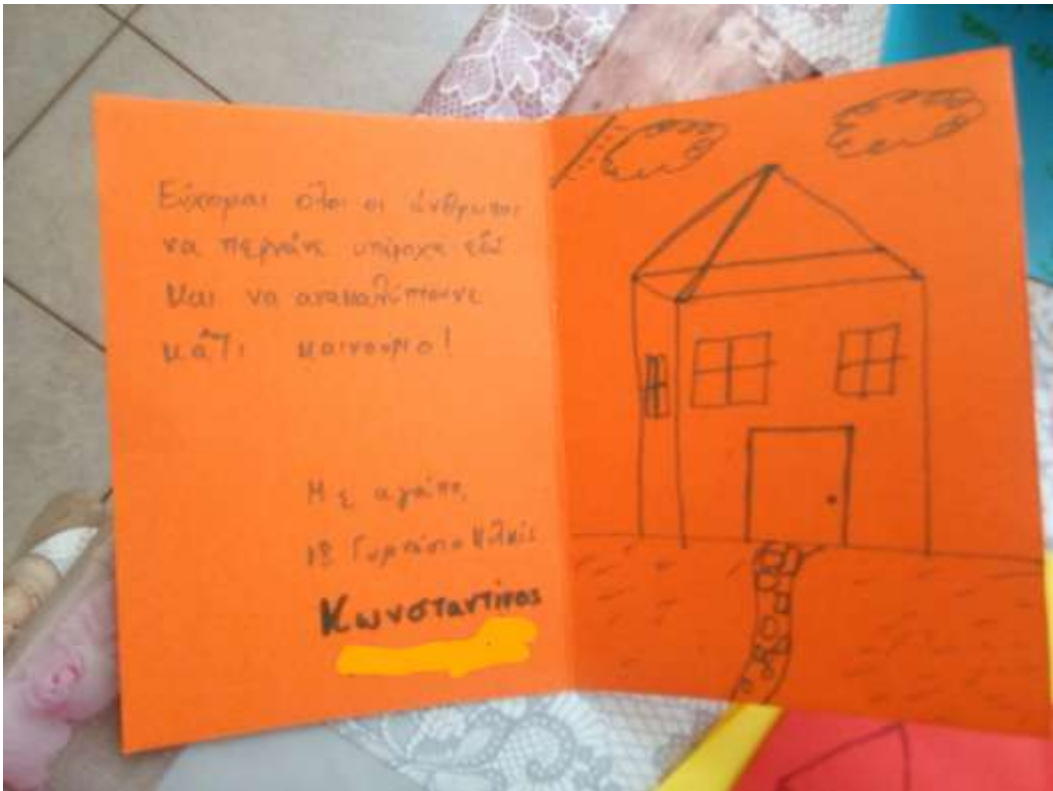 Εύχομαι όλοι οι άνθρωποι
να περνάνε υπέροχα εδώ
και να ανακαλύπτουνε
κάτι καινούριο!
Με αγάπη,
Γυμνάσιο Κιλκίς
Κωνσταντίνος